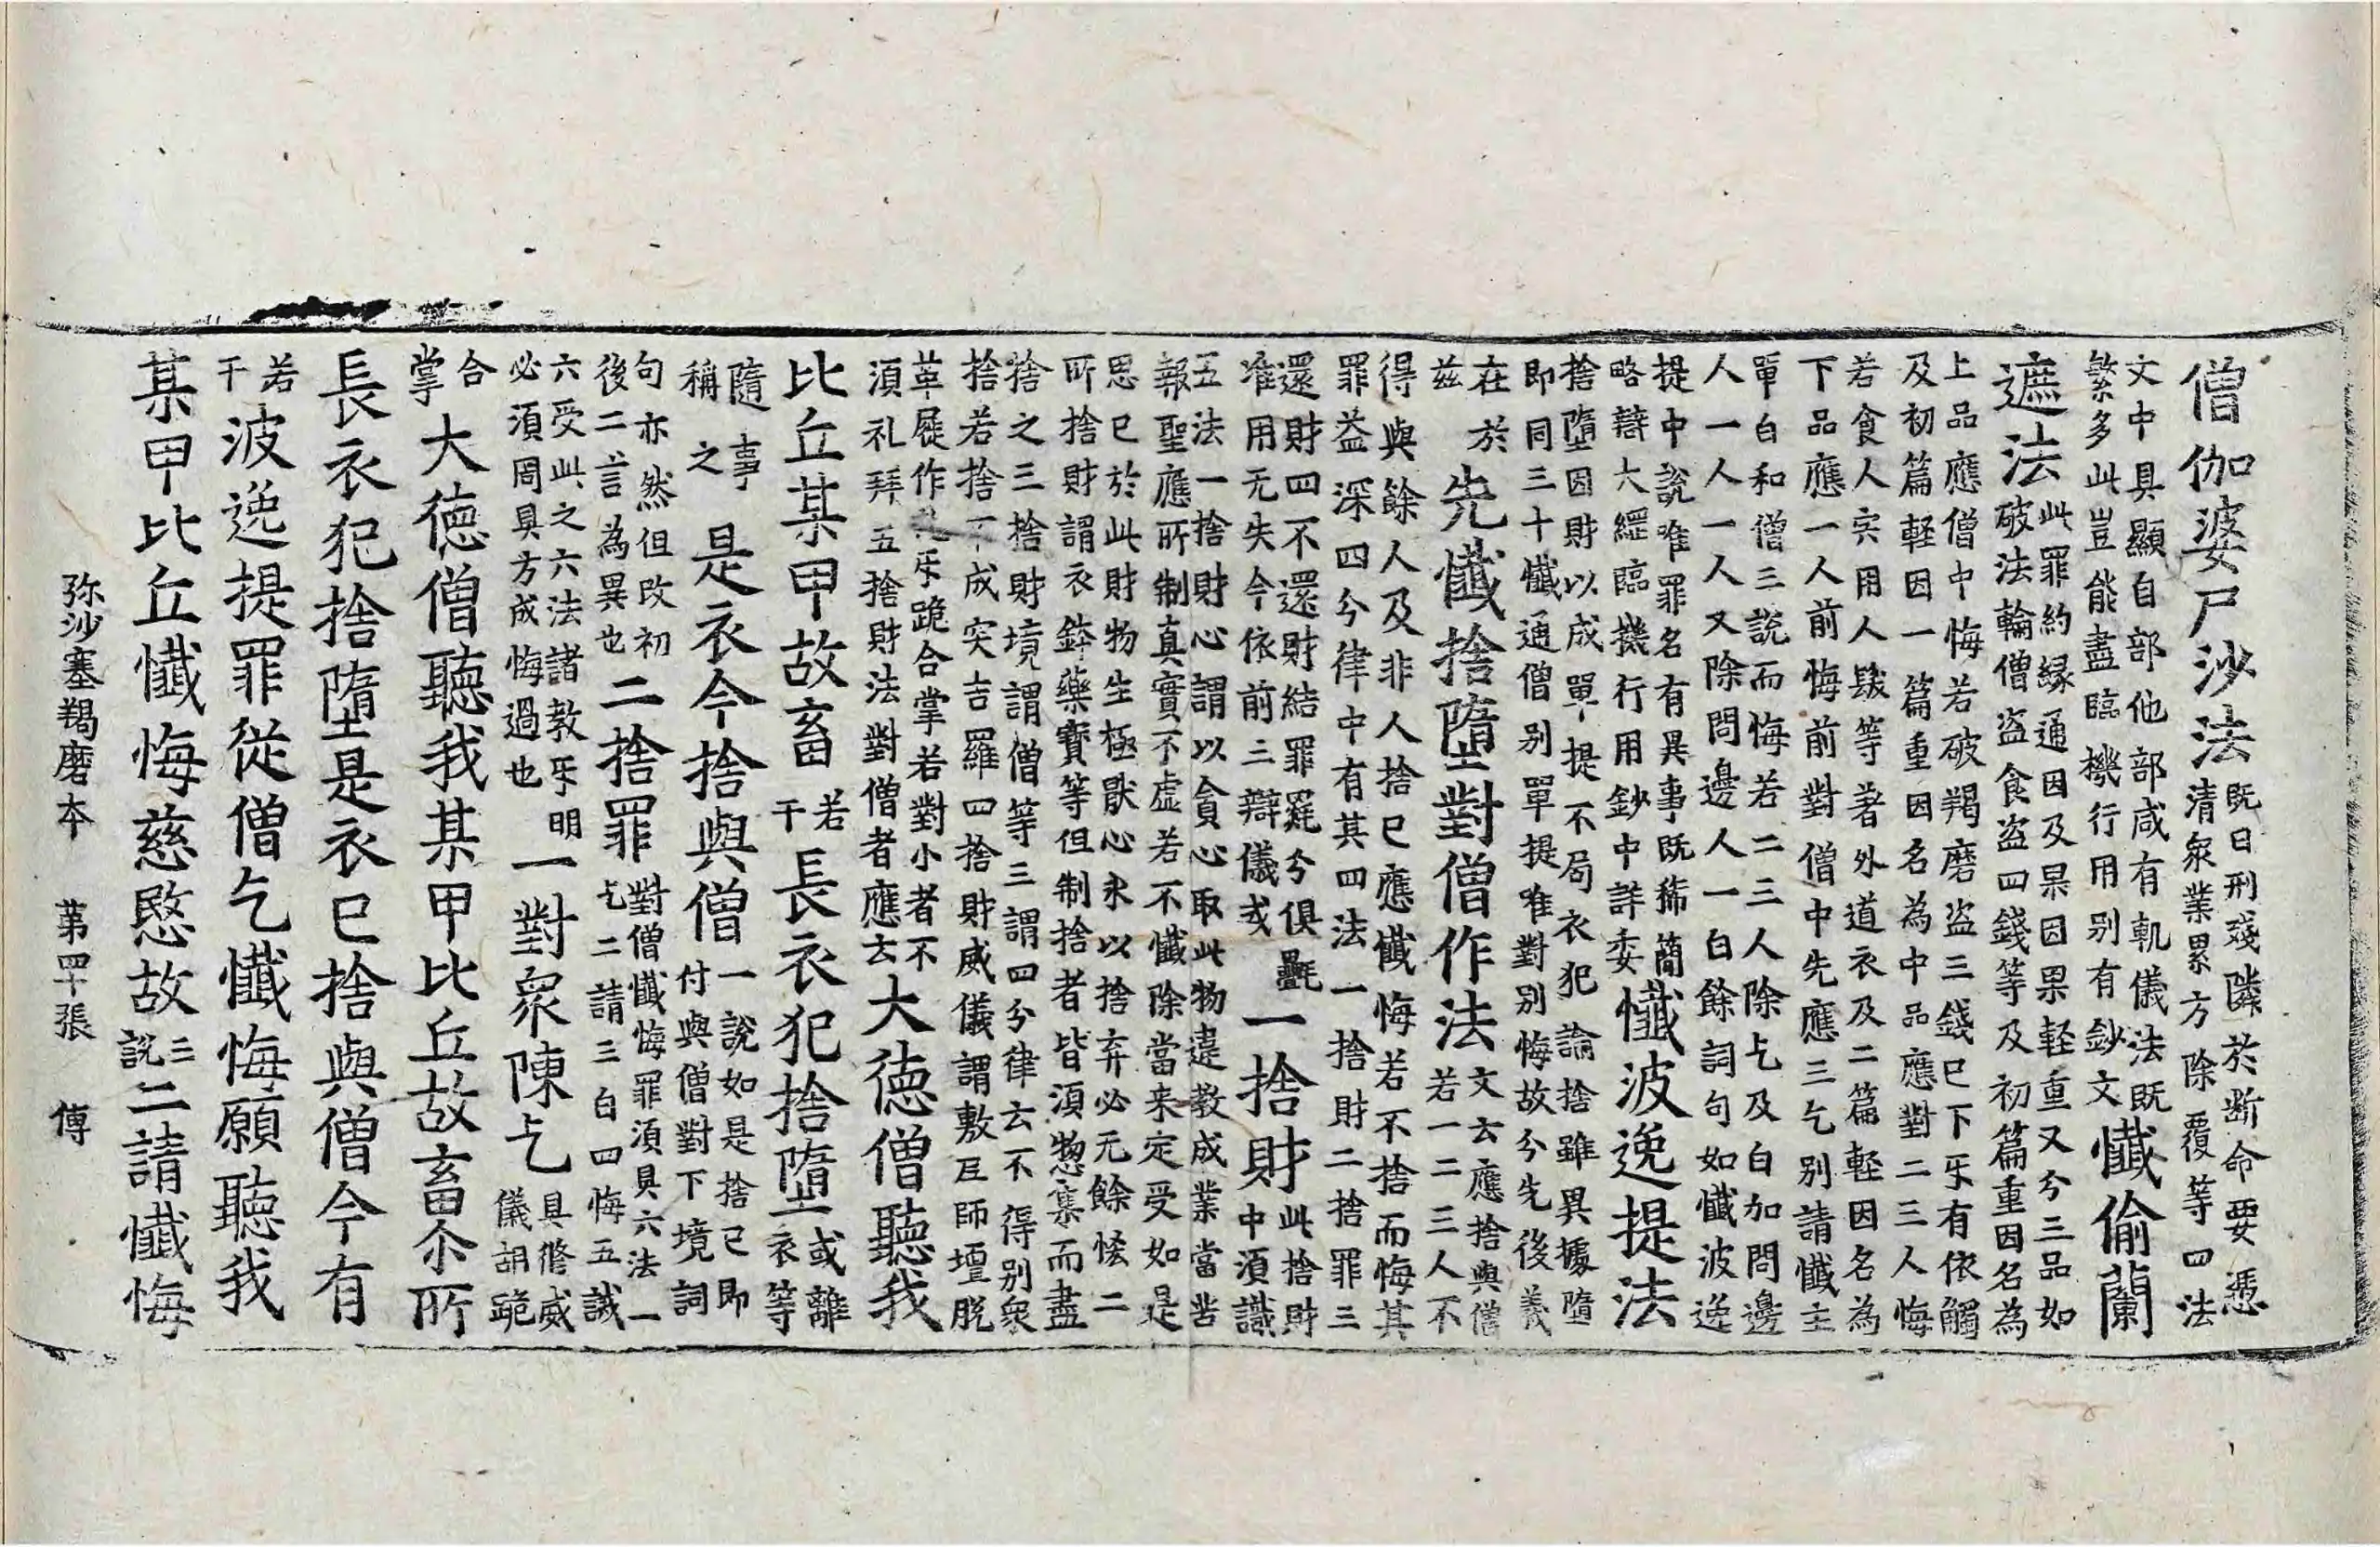 僧伽婆尸沙法既曰刑殘隣於断命要憑
清衆業累方除覆等四法
文中具顯自部他部咸有軌儀法既
繁多此豈能盡臨機行用别有鈔文懺偷蘭
遮法此罪約緣通因及果因果軽重又分三品如
破法輪僧盗食盗四錢等及初篇重因名為
上品應僧中悔若破羯磨盗三錢已下乐有依觸
及初篇軽因一篇重因名為中品應對二三人悔
若食人宍用人髮等著外道衣及二篇軽因名為
下品應一人前悔前對僧中先應三乞别請懺主
單白和僧三說而悔若二三人除乞及白加問邊
人一人一人又除問邊人一白餘詞句如懺波逸
提中說唯罪名有異事既狶簡
略辯大綱臨機行用鈔中詳委懺波逸提法
捨墮因財以成單提不局衣犯論捨雖異據墮
即同三十懺通僧别單提唯對别悔故分先後義
在於
茲先懺捨墮對僧作法文云應捨與僧
若一二三人不
得與餘人及非人捨已應懺悔若不捨而悔其
罪益深四分律中有其四法一捨財二捨罪三
還財四不還財結罪羅分俱疊
准用无失今依前三辯儀或一捨財此捨財
中須識
五法一捨財心謂以貪心取此物違教成業當苦
報聖應所制真實不虚若不懺除當来定受如是
思已於此財物生極猒心永以捨弃必无餘悋二
所捨財謂衣鉢藥寶等但制捨者皆須惣集而盡
捨之三捨財境謂僧等三謂四分律云不得别衆
捨若捨不成突吉羅四捨財威儀謂敷尼師壇脱
革屣作礼乐跪合掌若對小者不
須礼拜五捨財法對僧者應云大德僧聽我
比丘某甲故畜若
干長衣犯捨墮或離
衣等
隨事
稱之是衣今捨與僧一說如是捨已即
付與僧對下境詞
句亦然但改初
後二言為異也二捨罪對僧懺悔罪須具六法一
乞二請三白四悔五誡
六受此之六法諸教乐明
必須周具方成悔過也一對衆陳乞具脩威
儀胡跪
合
掌大德僧聽我某甲比丘故畜尒所
長衣犯捨墮是衣已捨與僧今有
若
干波逸提罪従僧乞懺悔願聽我
某甲比丘懺悔慈愍故三
說二請懺悔
弥沙塞羯磨本 苐四十張 傅